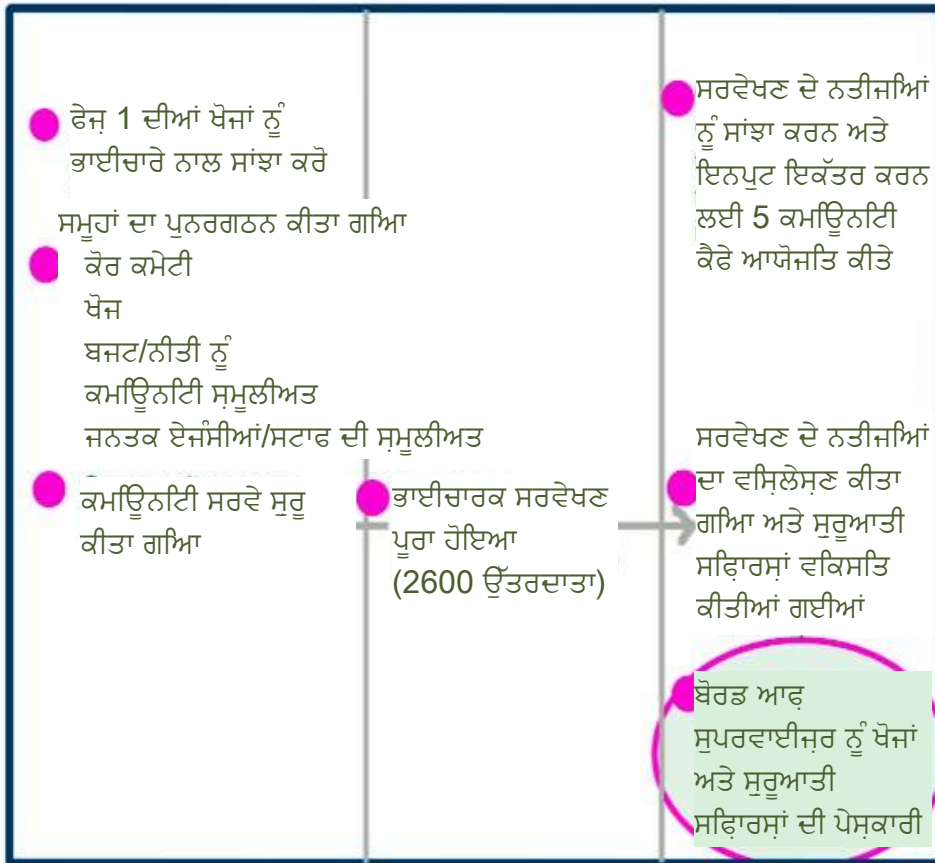 ਫੇਜ਼ 1 ਦੀਆਂ ਖੋਜਾਂ ਨੂੰ
ਭਾਈਚਾਰੇ ਨਾਲ ਸਾਂਝਾ ਕਰੋ
ਸਮੂਹਾਂ ਦਾ ਪੁਨਰਗਠਨ ਕੀਤਾ ਗਿਆ
ਕੋਰ ਕਮੇਟੀ
ਖੋਜ
ਬਜਟ/ਨੀਤੀ ਨੂੰ
ਕਮਿਊਨਿਟੀ ਸ਼ਮੂਲੀਅਤ
ਜਨਤਕ ਏਜੰਸੀਆਂ/ਸਟਾਫ ਦੀ ਸ਼ਮੂਲੀਅਤ
ਕਮਿਊਨਿਟੀ ਸਰਵੇ ਸ਼ੁਰੂ
ਕੀਤਾ ਗਿਆ
ਭਾਈਚਾਰਕ ਸਰਵੇਖਣ
ਪੂਰਾ ਹੋਇਆ
(2600 ਉੱਤਰਦਾਤਾ)
ਸਰਵੇਖਣ ਦੇ ਨਤੀਜਿਆਂ
ਨੂੰ ਸਾਂਝਾ ਕਰਨ ਅਤੇ
ਇਨਪੁਟ ਇਕੱਤਰ ਕਰਨ
ਲਈ 5 ਕਮਿਊਨਿਟੀ
ਕੈਫੇ ਆਯੋਜਿਤ ਕੀਤੇ
ਸਰਵੇਖਣ ਦੇ ਨਤੀਜਿਆਂ
ਦਾ ਵਿਸ਼ਲੇਸ਼ਣ ਕੀਤਾ
ਗਿਆ ਅਤੇ ਸ਼ੁਰੂਆਤੀ
ਸਿਫ਼ਾਰਿਸ਼ਾਂ ਵਿਕਸਿਤ
ਕੀਤੀਆਂ ਗਈਆਂ
ਬੋਰਡ ਆਫ਼
ਸੁਪਰਵਾਈਜ਼ਰ ਨੂੰ ਖੋਜਾਂ
ਅਤੇ ਸ਼ੁਰੂਆਤੀ
ਸਿਫ਼ਾਰਿਸ਼ਾਂ ਦੀ ਪੇਸ਼ਕਾਰੀ